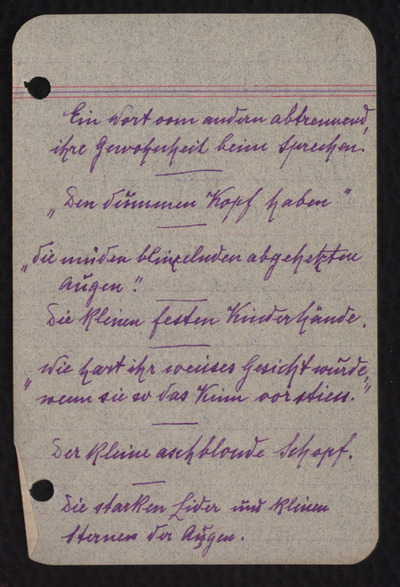 Ein Wort vom andern abtrennend,
ihre Gewohnheit beim Sprechen.
„Den dummen Kopf haben"
„Die müden blinzelnden abgehetzten
Augen."
Die kleinen festen Kinderhände.
„Wie hart ihr weisses Gesicht wurde,
wenn sie so das Kinn vorstiess."
Der kleine aschblonde Schopf.
Die starken Lider und kleinen
Sternen der Augen.